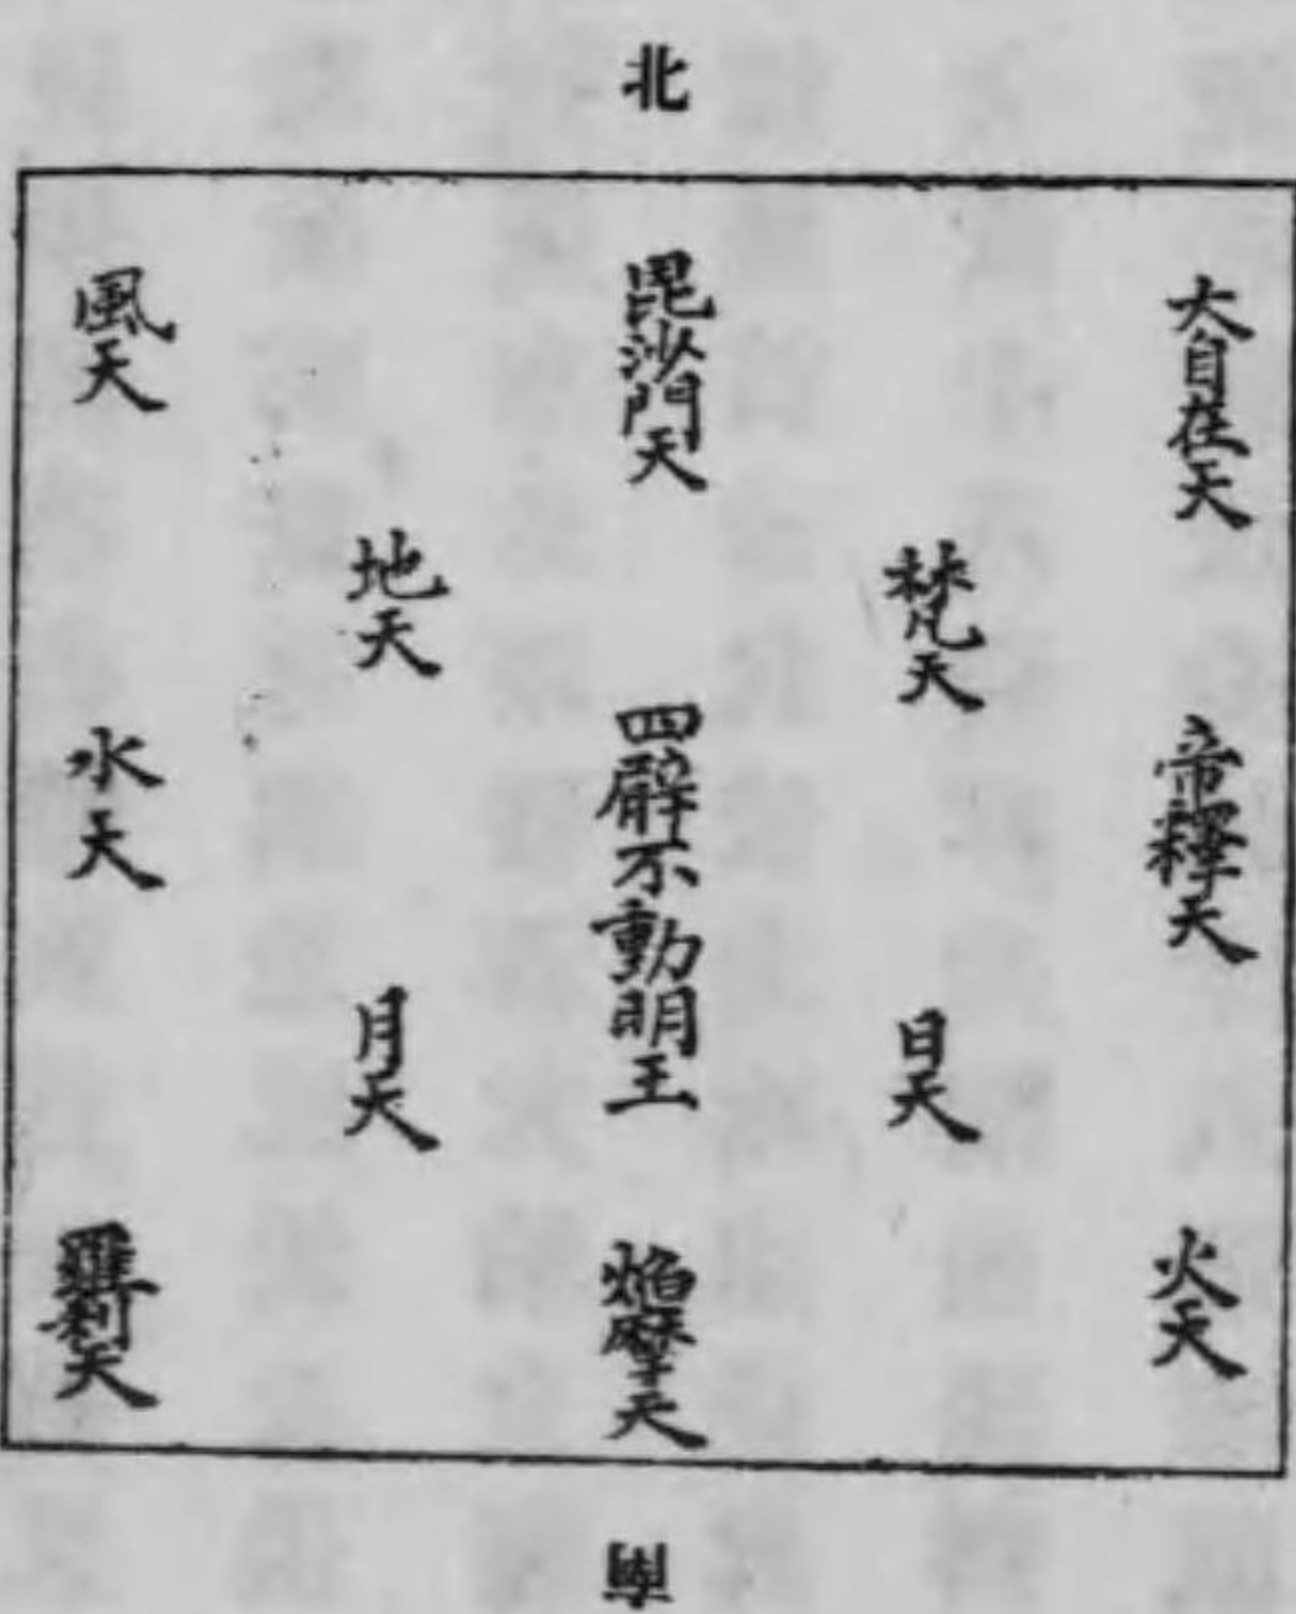 北
大自在天
帝釋天
火天
梵天
日天
毘沙門天
四臂不動明王
焰摩天
地天
月天
風天
水天
羅刹天